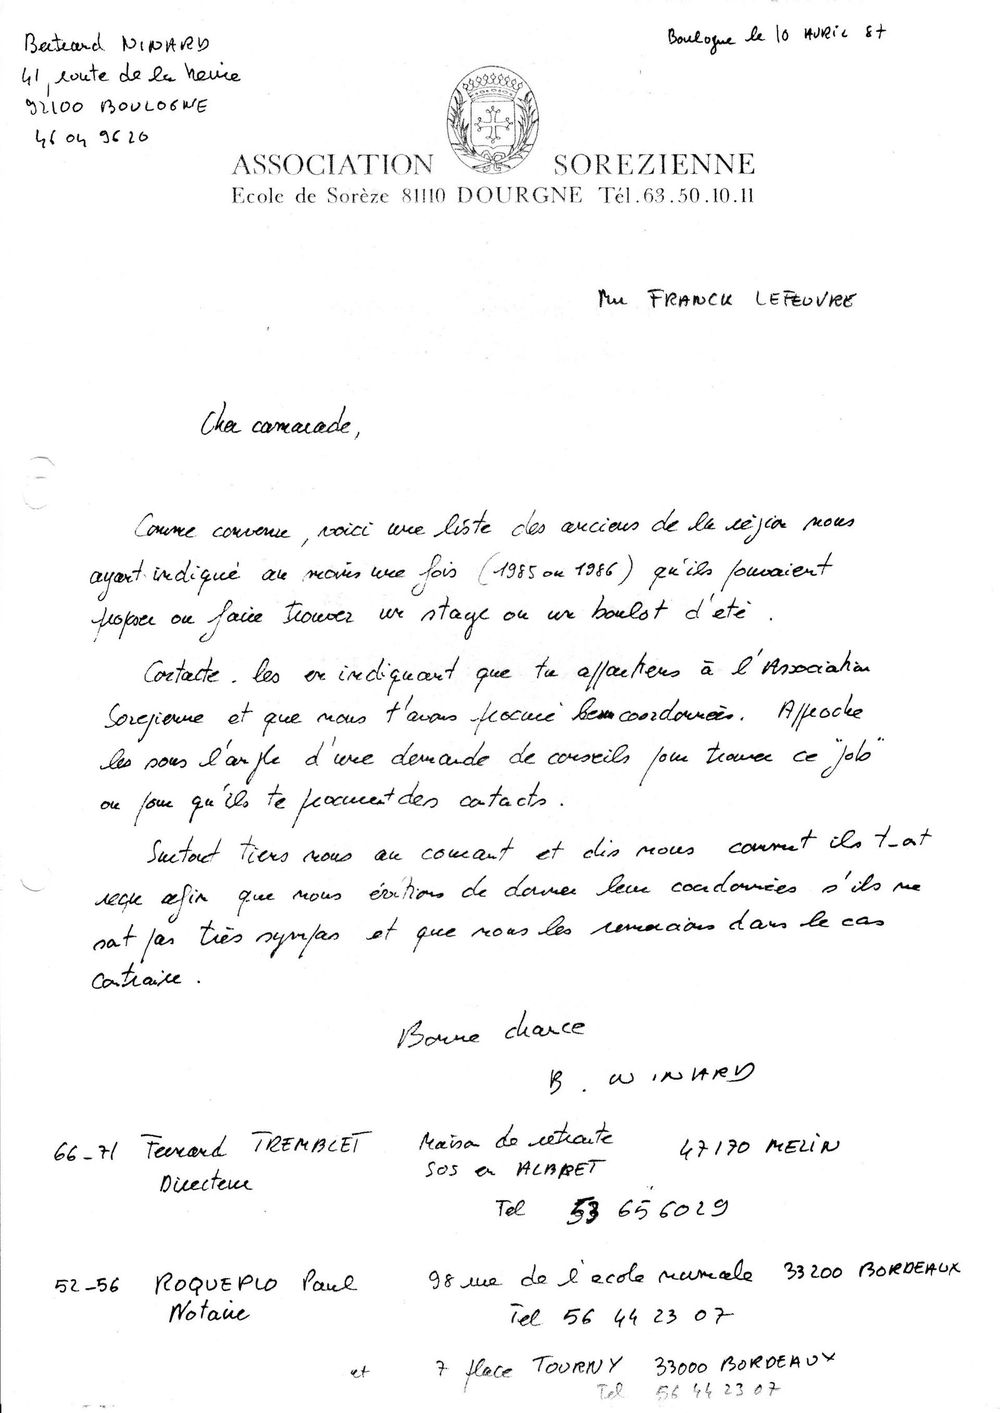 Bertrand NINARD
41, route de la Reine
92100 BOULOGNE
46 04 96 20
Boulogne le 10 AVRIL 87
ASSOCIATION SOREZIENNE
Ecole de Sorèze 81110 DOURGNE Tél.63.50.10.11
Mr FRANCK LEFEUVRE
Cher camarade,
Comme convenu, voici une liste des anciens de la région nous
ayant indiqué au moins une fois (1985 ou 1986) qu'ils pouvaient
proposer ou faire trouver un stage ou un boulot d'été.
Contacte-les en indiquant que tu appartiens à l'Association
Sorezienne et que nous t'avons procuré leurs coordonnées. Approche
les sous l'angle d'une demande de conseils pour trouver ce "job"
ou pour qu'ils te procurent des contacts.
Surtout tiens nous au courant et dis nous comment ils t-ont
reçu afin que nous évitions de donner leur coordonnées s'ils ne
sont pas très sympas et que nous les remercions dans le cas
contraire.
Bonne chance
B. NINARD
66-71 Fernand TREMBLET Maison de retraite 47170 MEZIN
Directeur SOS en ALBRET
Tel 53 656029
52-56 ROQUEPLO Paul 98 rue de l'école normale 33200 BORDEAUX
Notaire Tel 56 44 23 07
et 7 place TOURNY 33000 BORDEAUX
Tel 56 44 23 07